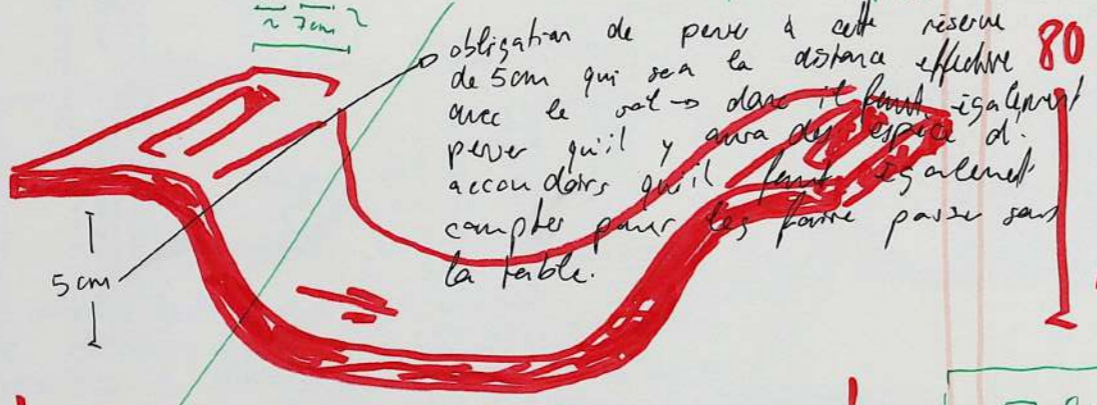 ~ 7cm ~
obligation de penser à cette réserve
de 5cm qui sera la distance effective
80
avec le sol → donc il faut également
penser qu'il y aura des espèce d'
accoudoirs qu'il faut également
compter pour les faire passer sous
la table.
5 cm